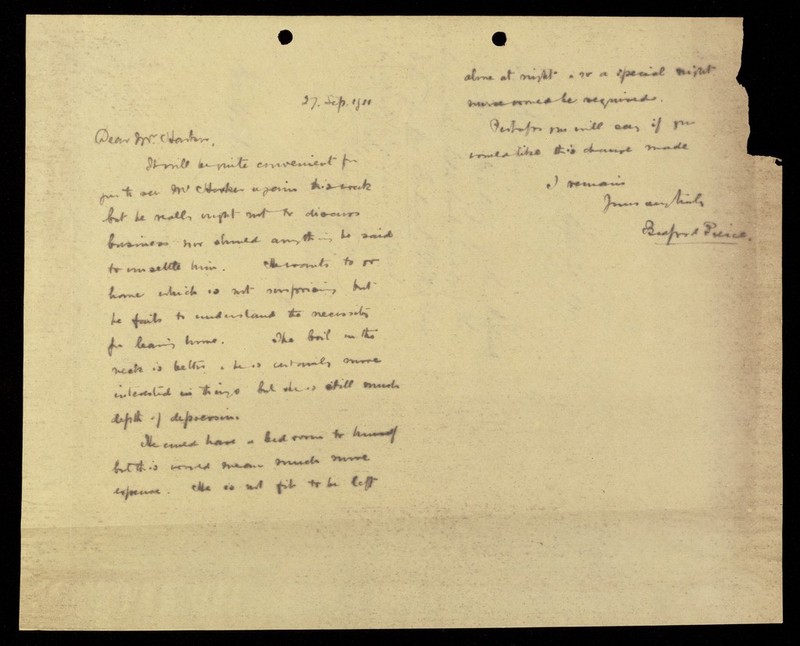 27. Sep. 1911
Dear Mrs
It will be quite convenient for
you to see Mr again this week
but he really ought not to discuss
business nor should anything be said
to unsettle him. He wants to go
home which is not surprising but
he fails to understand the necessity
for leaving home. The boil in the
neck is better & he is certainly more
interested in things but he is still much
depth of depression.
He could have a bedroom to himself
but this would mean much more
expense. He is not fit to be left
alone at night & so a special night
nurse would be required.
Perhaps you will say if you
would like this change made
I remain
Yours very truly
Bedford Pierce.